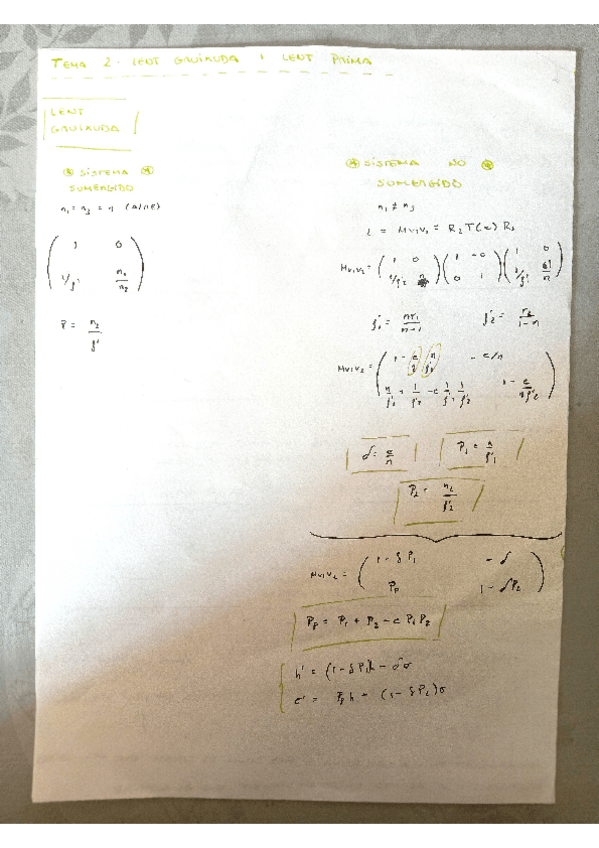 TEMA 2. LENT GRUIXUDA I LENT PRIMA
LENT
GRUIXUDA
SISTEMA
SUMERGIDO
n₁ = n₃ = n (AIRE)
( 1 0
1/f' n₁/n₂ )
P = n₂/f'
SISTEMA NO
SUMERGIDO
n₁ ≠ n₃
= Mv₁v₂ = R₂ T(e) R₁
Mv₁v₂ =
f'₁ = nr₁/n-1 f'₂ = r₂/1-n
Mv₁v₂ = ( 1 - e/n n/f'₁ - e/n
n/f'₁ + 1/f'₂ - e 1/f'₁ 1/f'₂ 1 - e/nf'₂ )
δ = e/n P₁ = n/f'₁
P₂ = n₂/f'₂
Mv₁v₂ = ( 1 - δP₁ - δ
Pp 1 - δP₂ )
Pp = P₁ + P₂ - e P₁P₂
h' = (1 - δP₁)h - δσ
σ' = Pp h + (1 - δP₂)σ